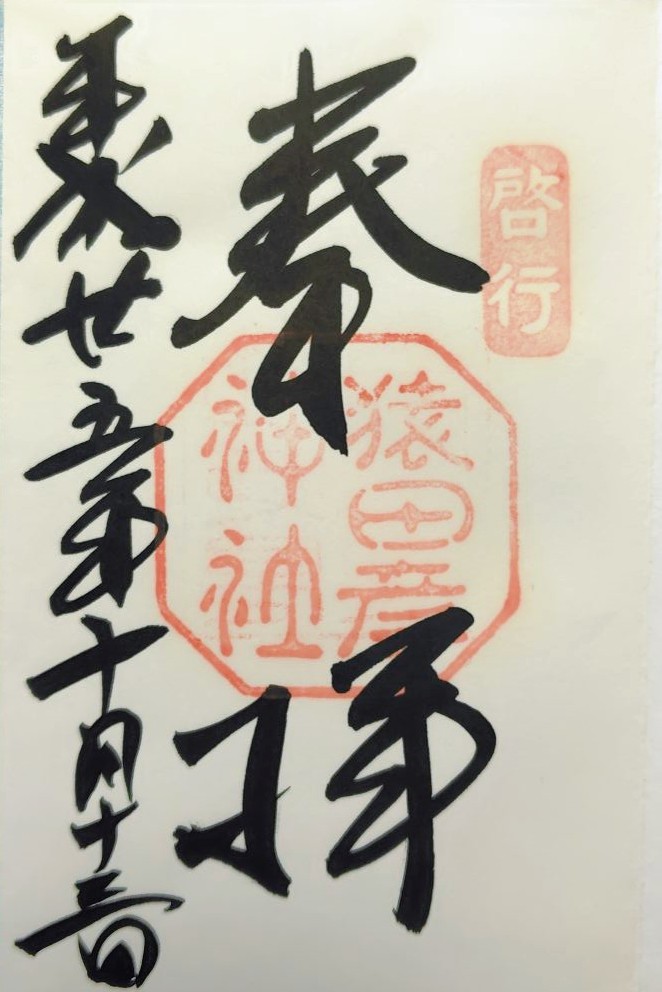 啓行
奉拝
猿田彦
神社
平成廿五年十月十三日